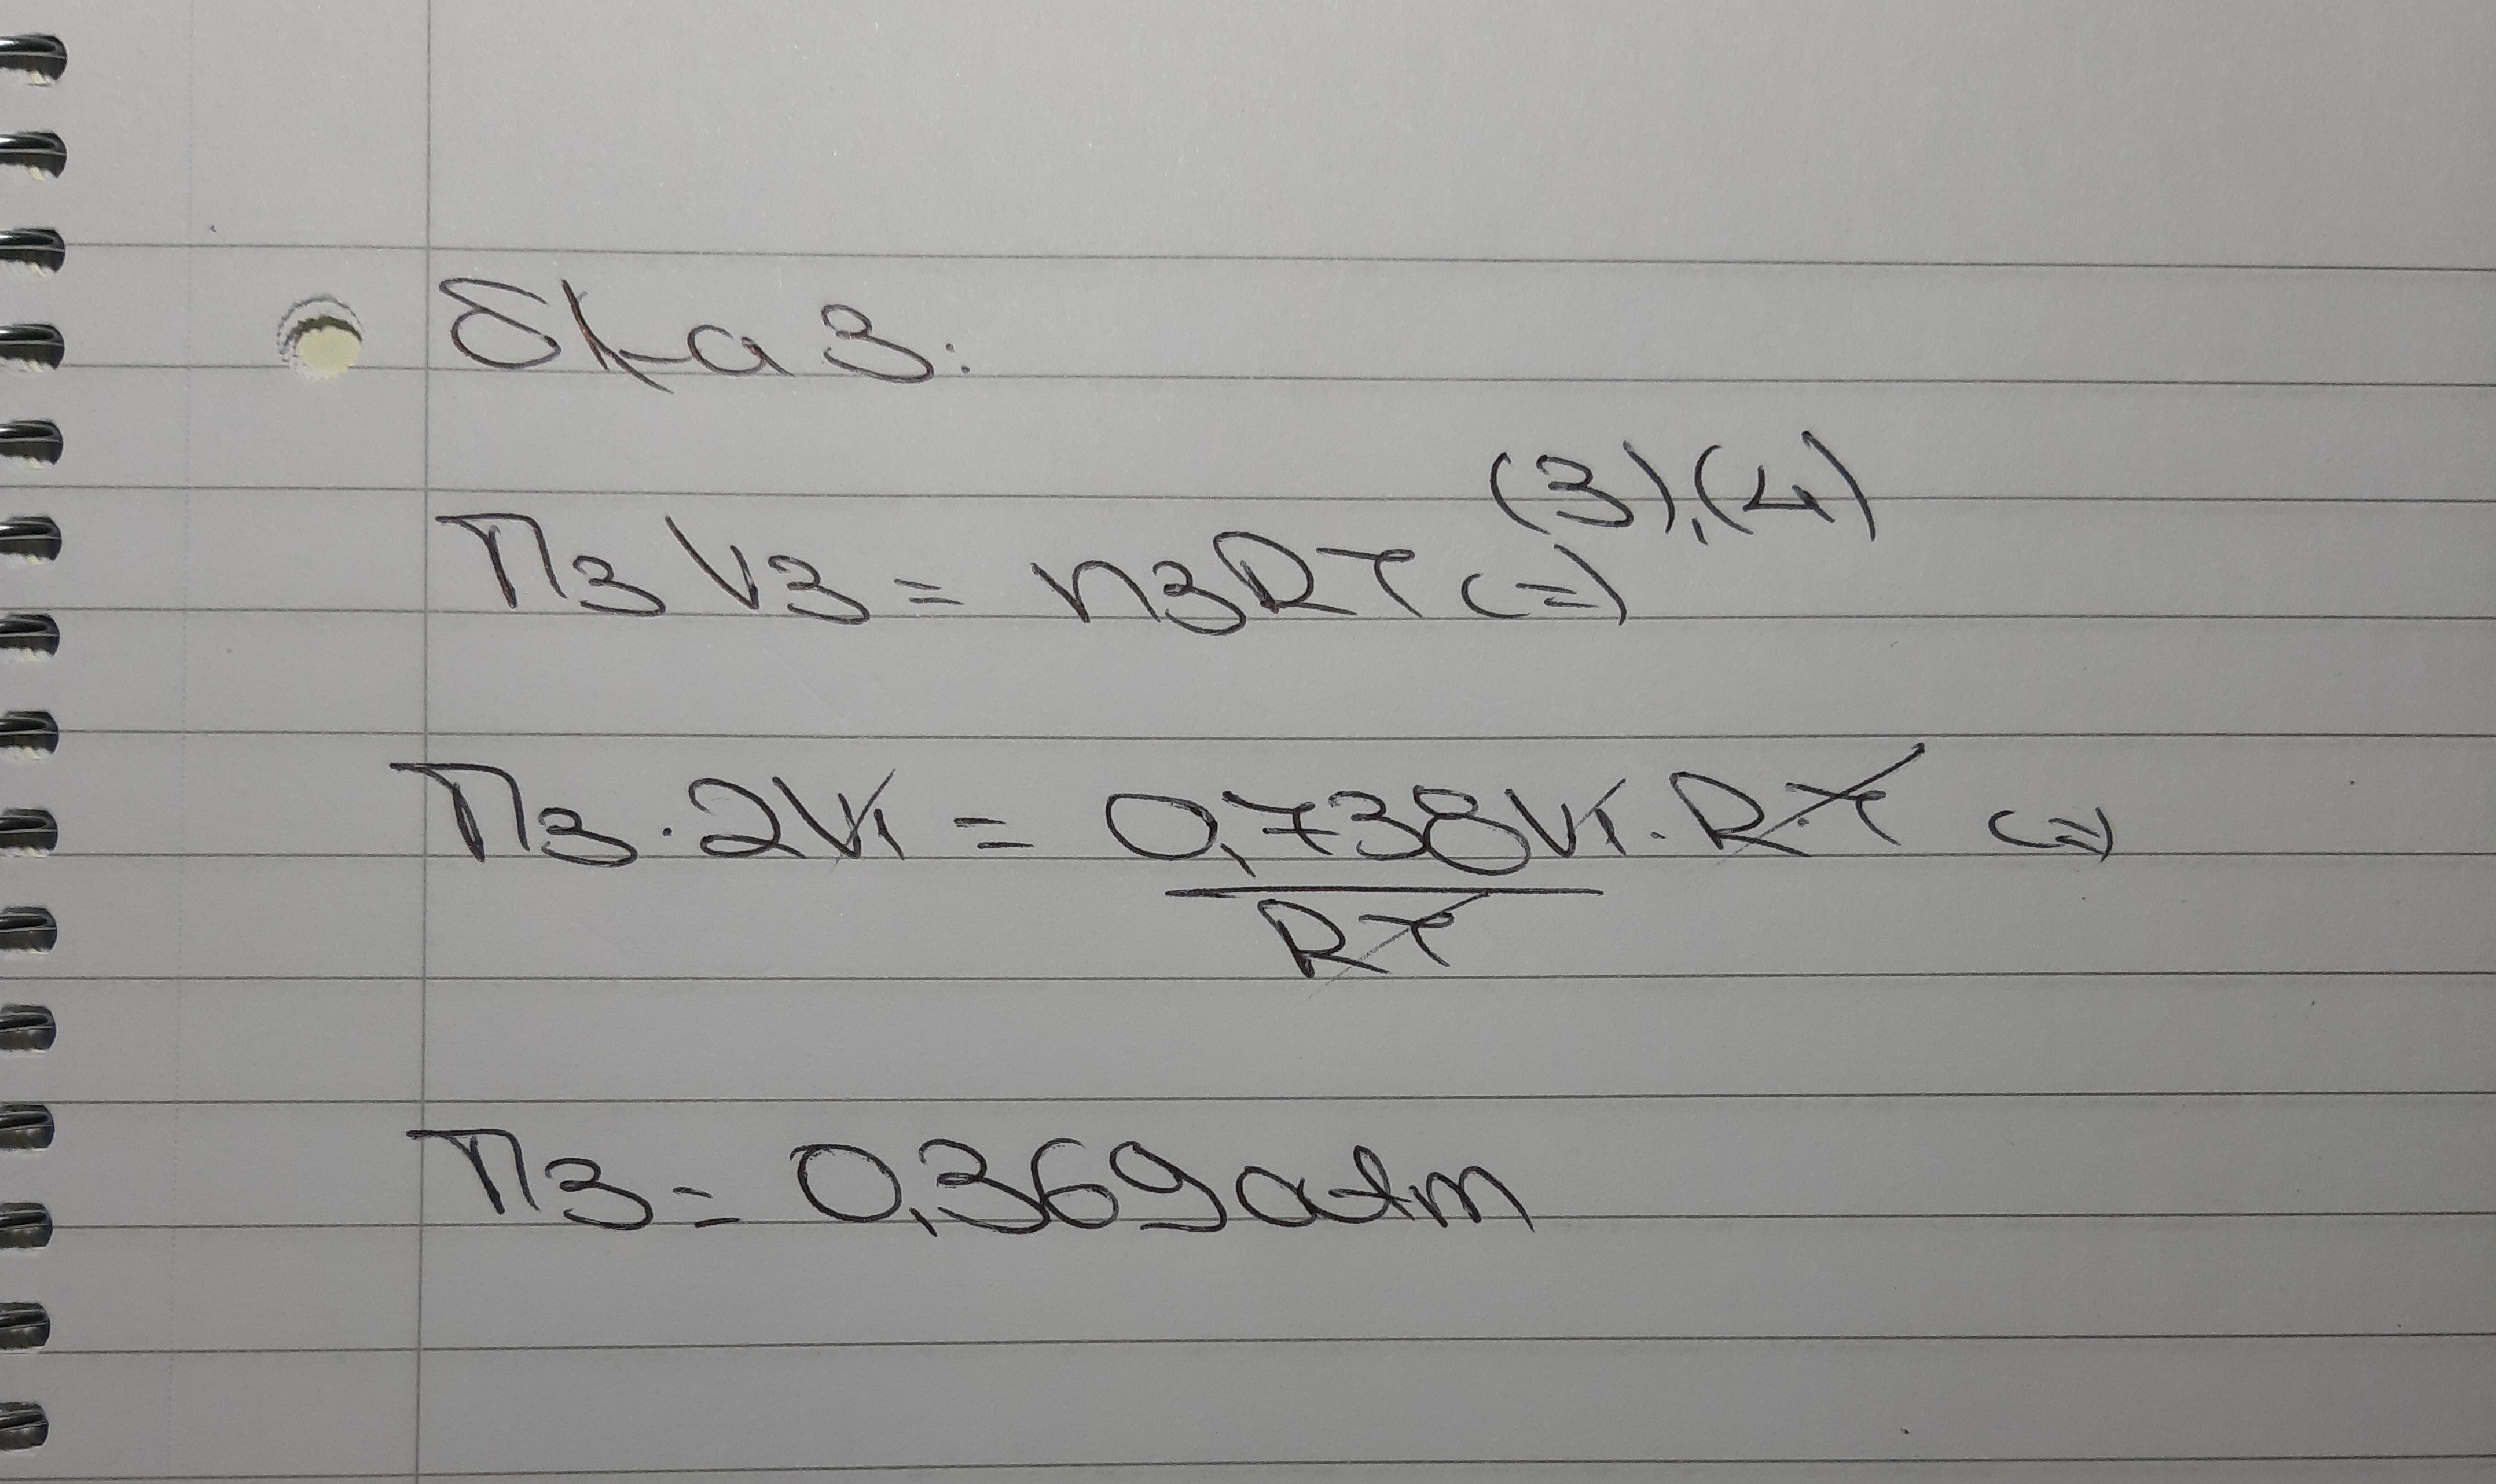 δ/μα 3:
(3),(4)
Π3 V3 = n3RT (=)
Π3 · 2V1 = 0,738V1 · R·T (=)
RT
Π3 = 0,369 atm